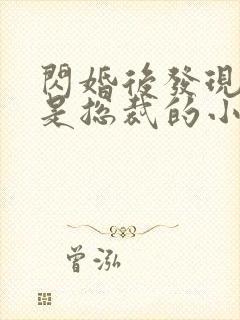 閃婚後發現
是總裁的小
曾泓